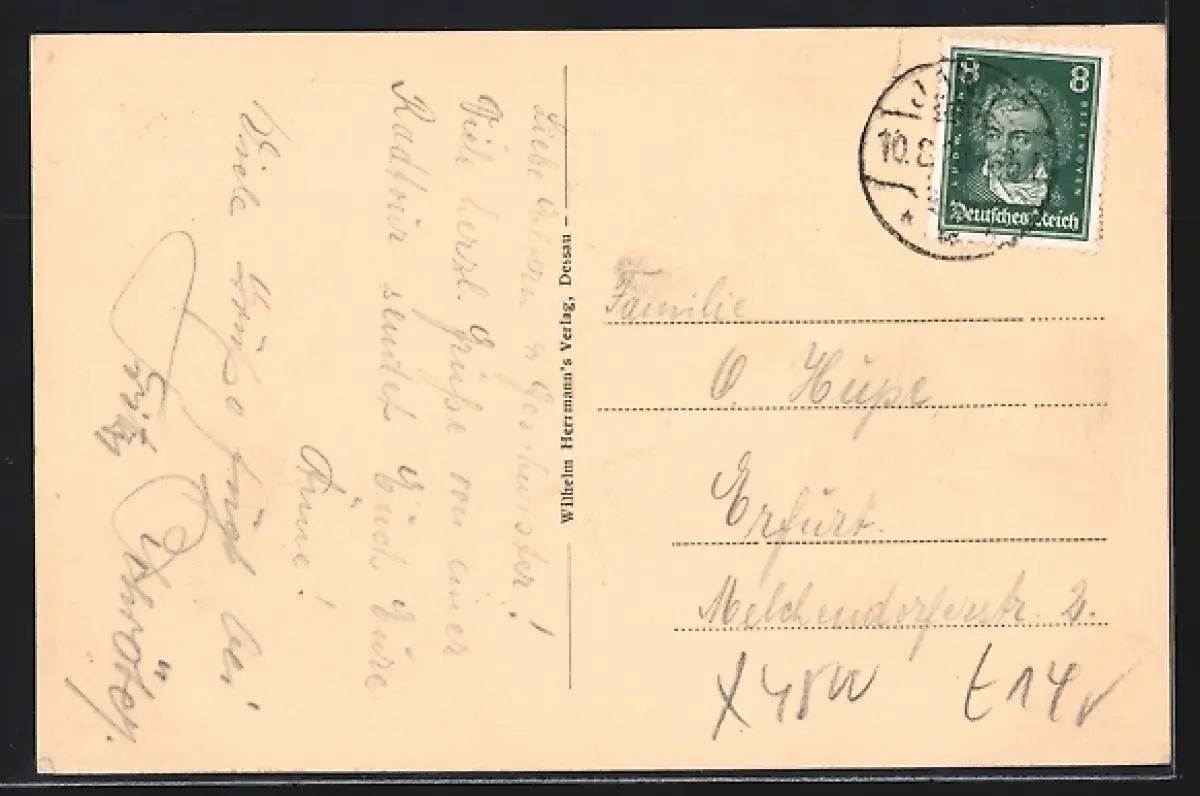 Liebe Eltern u. Geschwister!
Viele herzl. Grüße von einer
Radtour sendet Euch Eure
Änne!
Viele Grüße fügt bei
Fritz Schröter.
Wilhelm Herrmann's Verlag, Dessau
8 8
LUDW. VAN BEETHOVEN
Deutsches Reich
10.8.
Familie
O. Hüpe
Erfurt.
Melchendorferstr. 2.
t14